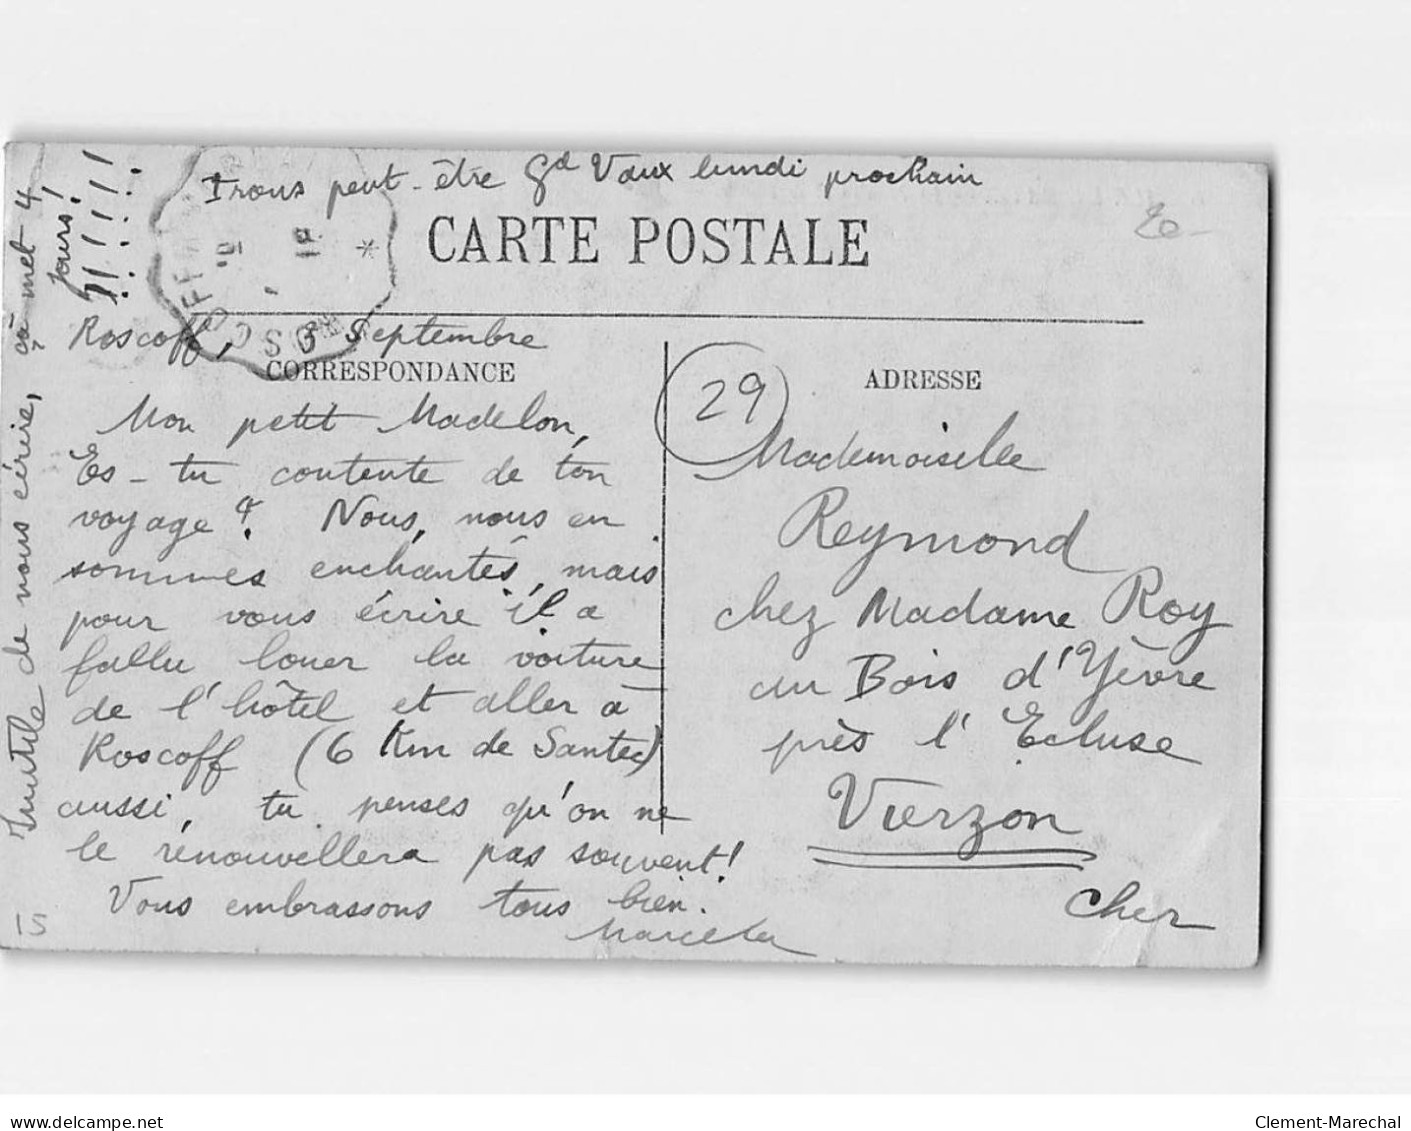 Irons peut-être Gd Vaux lundi prochain
CARTE POSTALE
20-
Roscoff, 3 Septembre
CORRESPONDANCE
Mon petit Madelon,
Es-tu contente de ton
voyage ? Nous, nous en
sommes enchantés, mais
pour vous écrire il a
fallu louer la voiture
de l'hôtel et aller à
Roscoff (6 Km de Santec)
aussi, tu penses qu'on ne
le renouvellera pas souvent !
Vous embrassons tous bien.
Inutile de nous écrire, ça met 4
jours !
!!!!!!
15
29
ADRESSE
Mademoiselle
Reymond
chez Madame Roy
au Bois d'Yèvre
près l'Ecluse
Vierzon
Cher
www.delcampe.net
Clement-Marechal